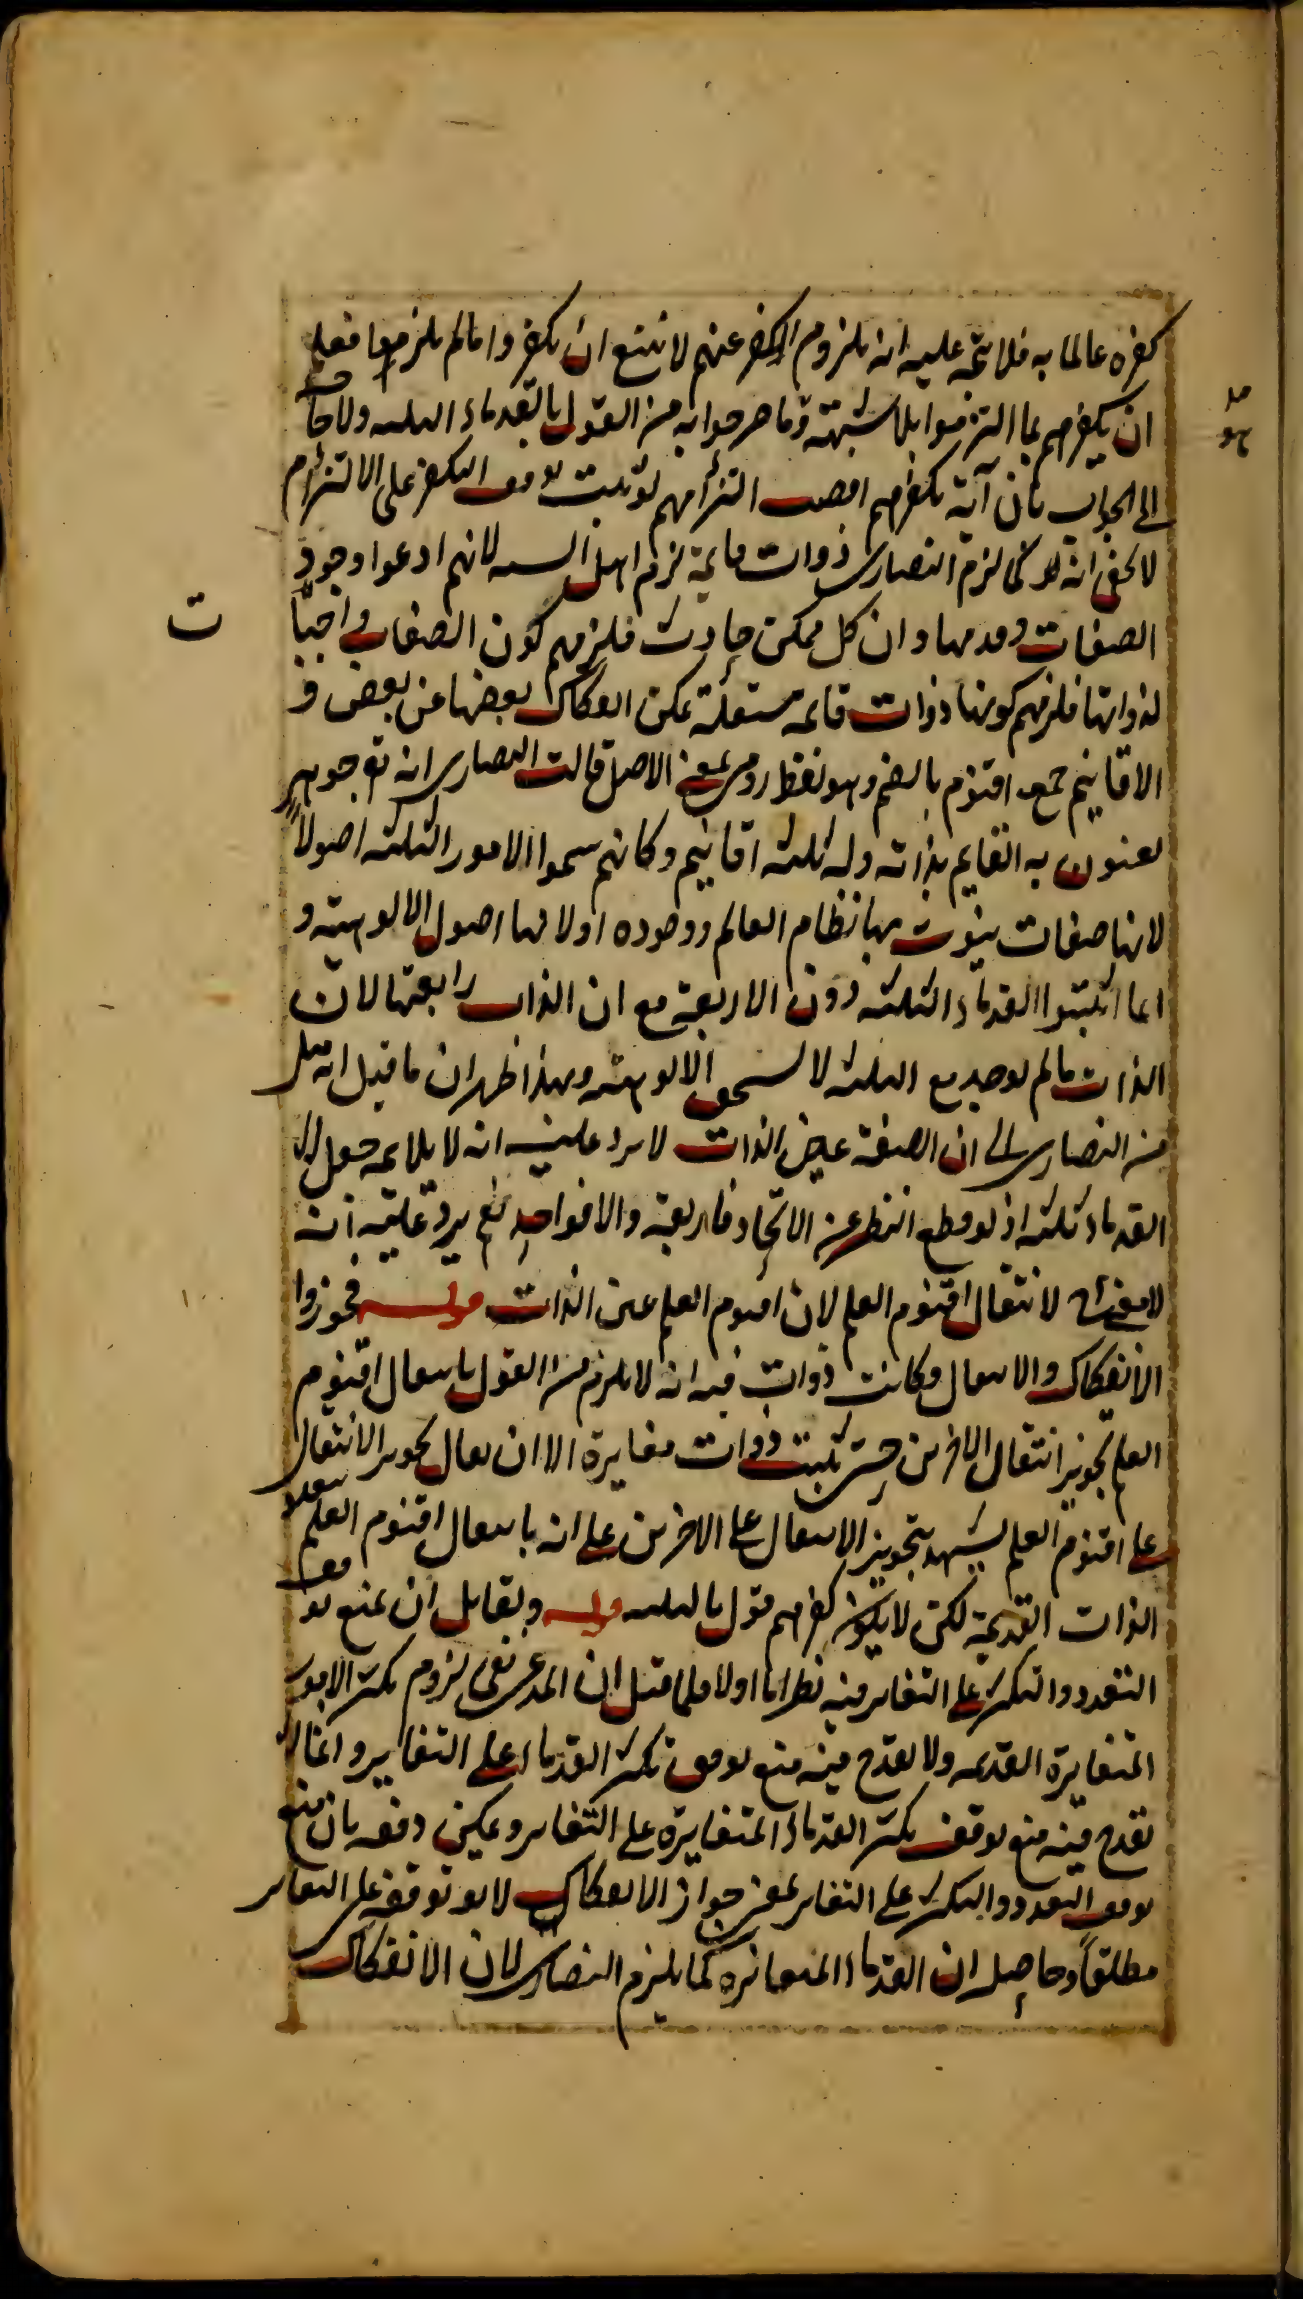 كفره عالما به فلا يتجه عليه انه بلزوم الكفر عنهم لا يمتنع ان يكفروا ما لم يلتزموا فعله
ان يكفرهم بما التزموا بلا شبهة وما صرحوا به من القول بالقدماء الثلثه ولا حاجة
الى الجواب بان آية تكفيرهم التزامهم لو ثبت توقف الكفر على الالتزام
لا يخفى انه كما لزم النصارى ذوات قايمة لزم اهل السنه لانهم ادعوا وجود
الصفات وقدمها وان كل ممكن حادث فلزمهم كون الصفات واجبا
لذواتها فلزمهم كونها ذوات قائمة مستقلة يمكن انفكاك بعضها عن بعض و
الاقانيم جمع اقنوم بالضم وهو لفظ رومى بمعنى الاصل قالت النصارى انه تع جوهر
يعنون به القايم بذاته وله ثلثه اقانيم وكانهم سموا الامور الثلثه اصولا
لانها صفات ينوت بها نظام العالم ووجوده اولانها اصول الالوهية و
انما اثبتوا القدماء الثلثه دون الاربعة مع ان الذات رابعتها لان
الذات ما لم يوجد مع الثلثه لا يستحق الالوهيه وبهذا ظهر ان ما قيل انه ميل
من النصارى الى ان الصفة عين الذات لا يرد عليه انه لا يلايمه جعل
القدماء ثلثه اذ لو قطع النظر عن الاتحاد فاربعة والا فواحد نعم يرد عليه ان
لا معنى لانتقال اقنوم العلم لان اقنوم العلم عين الذات قوله فجوزوا
الانفكاك والانتقال وكانت ذوات فيه انه لا يلزم من القول بانتقال اقنوم
العلم تجويز انتقال الاخرين حتى تثبت ذوات متغايرة الا ان يقال تجويز الانتقال
على اقنوم العلم يشهد بتجويز الانتقال على الاخرين على ان بانتقال اقنوم العلم
الذات القديمة لكن لا يكون كفرهم قول بالثلثه قوله ولقايل ان يمنع توقف
التعدد والتكثر على التغاير فيه نظر اما اولا فلما قيل ان المدعى نفى لزوم تكثر الامور
المتغايرة القديمه ولا يقدح فيه منع توقف تكثر القدماء على التغاير وانما
يقدح فيه منع توقف تكثر القدماء المتغايرة على التغاير ويمكن دفعه بان منع
توقف التعدد والتكثر على التغاير بمعنى جواز الانفكاك لا توقفه على التغاير
مطلقا وحاصله ان القدماء المتغايره كما يلزم النصارى لان الانفكاك
ت